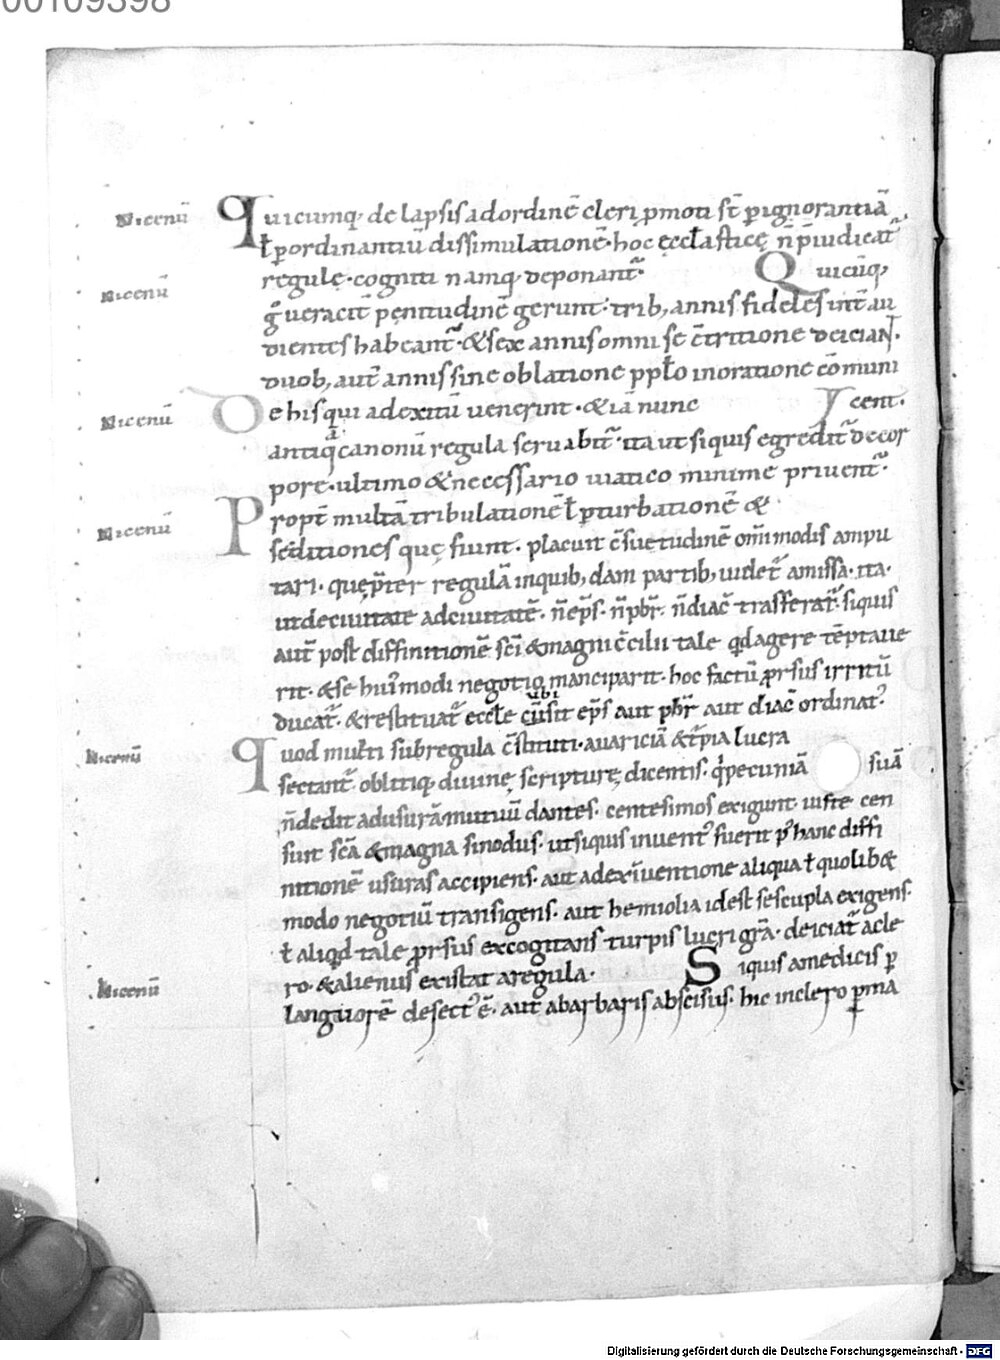 00109398
Nicenū Quicumq; de lapsis ad ordinē cleri pmoti st̄ p ignorantiā
ł p ordinantiū dissimulationē · hoc ęccłasticę n̄ p̄iudicat̄
regulę · cogniti namq; deponant̄.
Nicenū Quicūq;
ḡ ueracit̄ penitudinē gerunt · trib; annis fideles int̄ au
dientes habeant̄ · & sex annis omni se c̄tritione deiciant.
duob; aut̄ annis sine oblatione ppło in oratione cōmuni
cent.
Nicenū De his qui ad exitū uenerint · & iā nunc
antiqa canonū regula seruabit̄ · ita ut siquis egredit̄ de cor
pore · ultimo & necessario uiatico minime priuent̄.
Nicenū Propt̄ multā tribulationē ł pturbationē &
seditiones quę fiunt · placuit c̄suetudinē omīmodis ampu
tari · quę p̄ter regulā in quib;dam partib; uidet̄ amissa · ita ·
ut de ciuitate ad ciuitatē · n̄ ep̄s · n̄ pb̄r · n̄ diac̄ trasferat̄ · siquis
aut̄ post diffinitionē sc̄i & magni c̄cilii tale qd agere tēptaue
rit · & se huīmodi negotio manciparit · hoc factū prsus irritū
ducat̄ · & restituat̄ eccłe ubi
cui sit ep̄s aut pb̄r aut diac̄ ordinat̄.
Nicenū Quod multi sub regula c̄stituti · auariciā & t̄pia lucra
sectant̄ obliti q; diuinę scripturę dicentis · q̇ pecuniā suā
n̄ dedit ad usurā · mutuū dantes · centesimos exigunt · iuste cen
suit sc̄a & magna sinodus · ut siquis inuent̄ fuerit p̄ hanc diffi
nitionē usuras accipiens · aut ad exīuentione aliqua ł quolib&
modo negotiū transigens · aut hemiolia idest sescupla exigens ·
ł aliqd tale prsus excogitans turpis lucri gr̄a · deiciat̄ a cle
ro · & alienus existat a regula ·
Nicenū Siquis a medicis p
languorē desect̄ ē · aut a barbaris abscisus · hic in clero pma
Digitalisierung gefördert durch die Deutsche Forschungsgemeinschaft - DFG